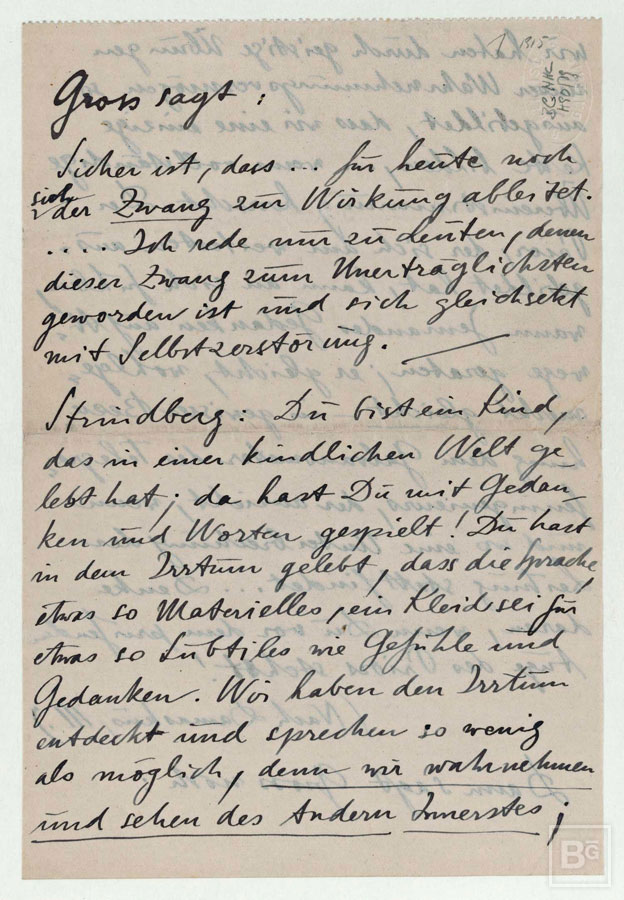 1315
BG-HHC
H90/79
Gross sagt:
Sicher ist, dass ... für heute noch
sich
der Zwang zur Wirkung ableitet.
.... Ich rede nur zu Leuten, denen
dieser Zwang zum Unerträglichsten
geworden ist und sich gleichsetzt
mit Selbstzerstörung. —
Strindberg: Du bist ein Kind,
das in einer kindlichen Welt ge
lebt hat; da hast Du mit Gedan-
ken und Worten gespielt! Du hast
in dem Irrtum gelebt, dass die Sprache,
etwas so Materielles, ein Kleid sei für
etwas so Subtiles wie Gefühle und
Gedanken. Wir haben den Irrtum
entdeckt und sprechen so wenig
als möglich, denn wir wahrnehmen
und sehen des Andern Innerstes;
BG